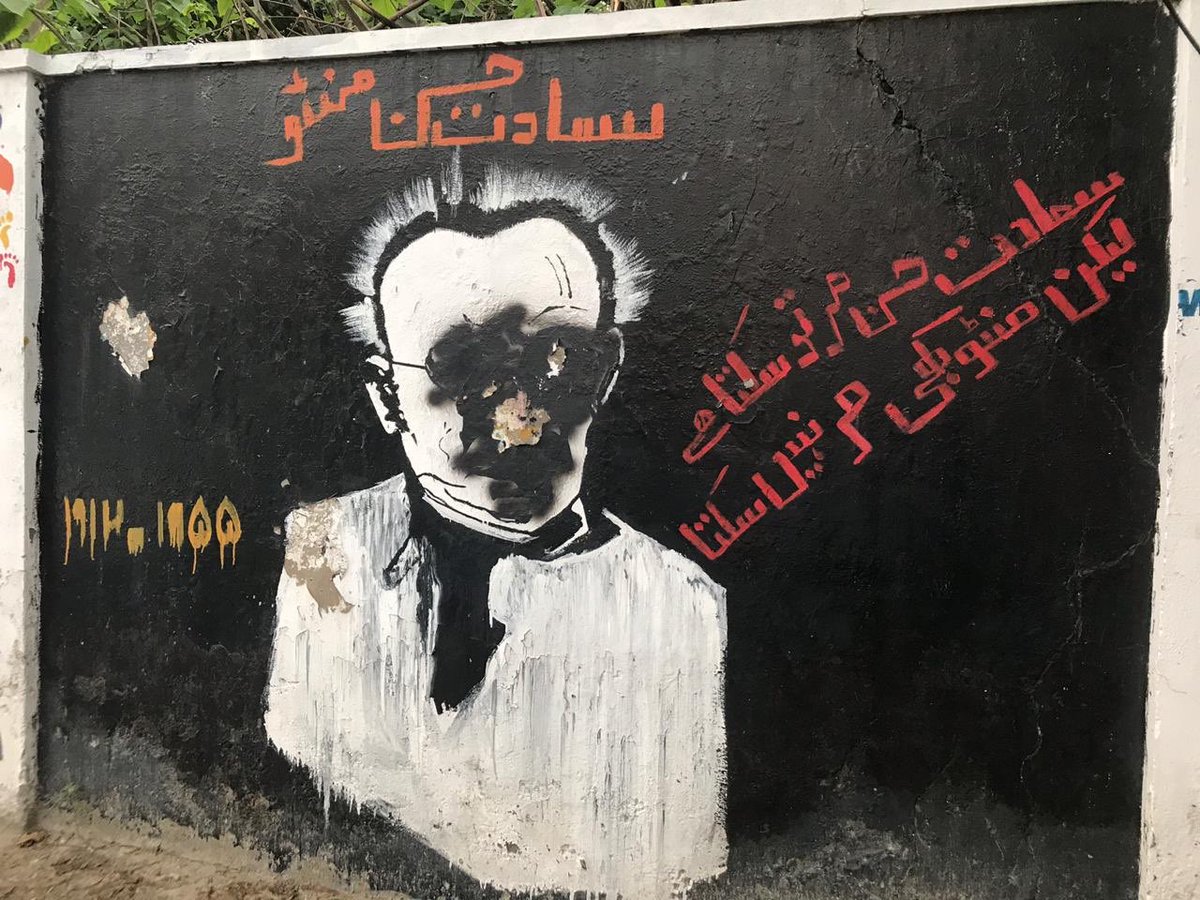 سعادت حسن منٹو
سعادت حسن مر تو سکتا ہے
لیکن منٹو کبھی مر نہیں سکتا
۱۹۱۲-۱۹۵۵